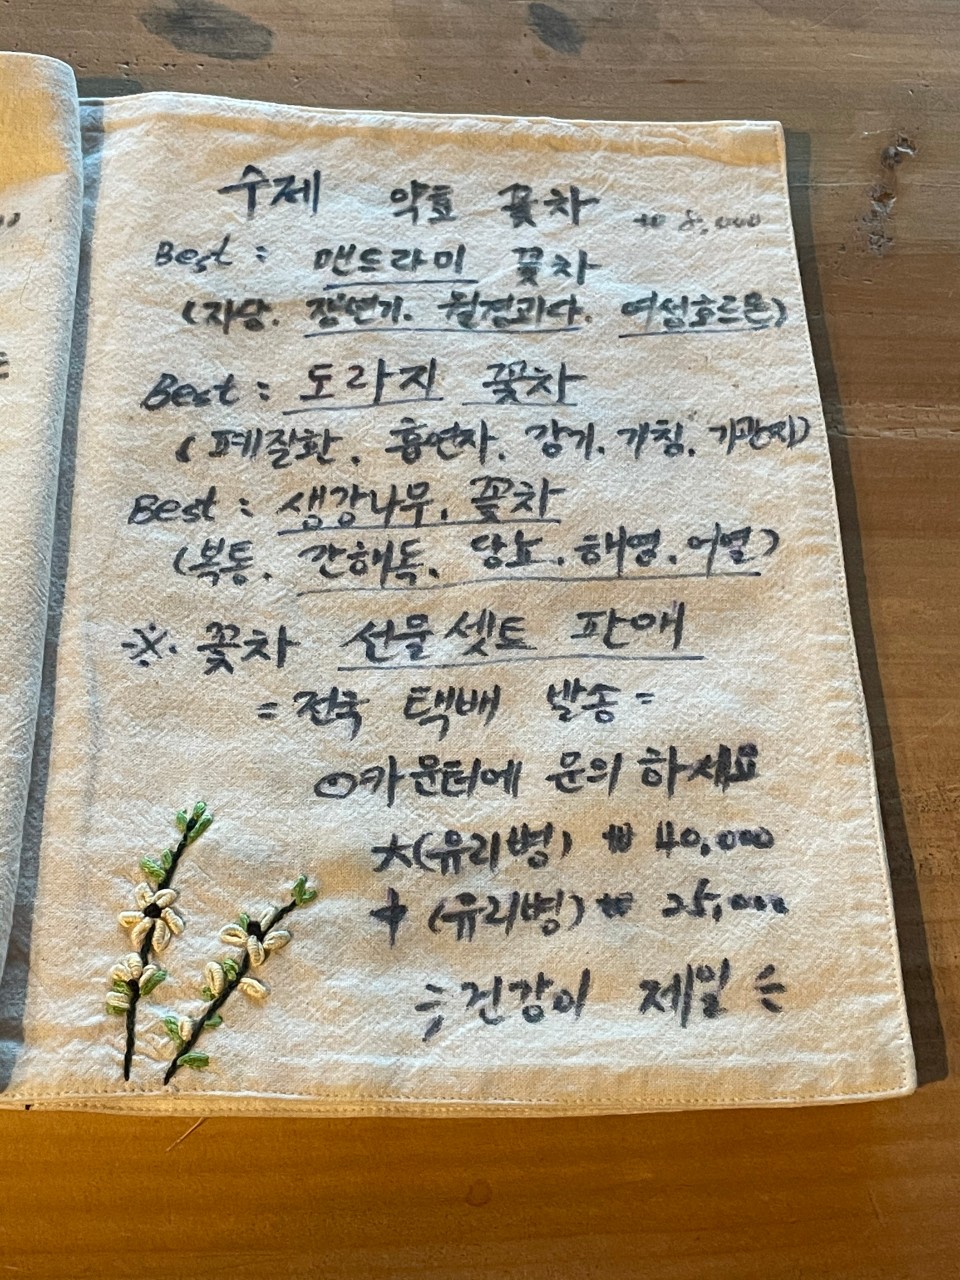 수제 약효 꽃차 ₩ 8,000
Best : 맨드라미 꽃차
(자궁. 갱년기. 월경과다. 여성호르몬)
Best : 도라지 꽃차
(폐질환, 흡연자, 감기. 기침. 기관지)
Best : 생강나무. 꽃차
(복통, 간해독, 당뇨. 해열. 어혈)
※ 꽃차 선물셋트 판매
= 전국 택배 발송 =
○카운터에 문의 하세요
大(유리병) ₩ 40,000
中 (유리병) ₩ 25,000
건강이 제일